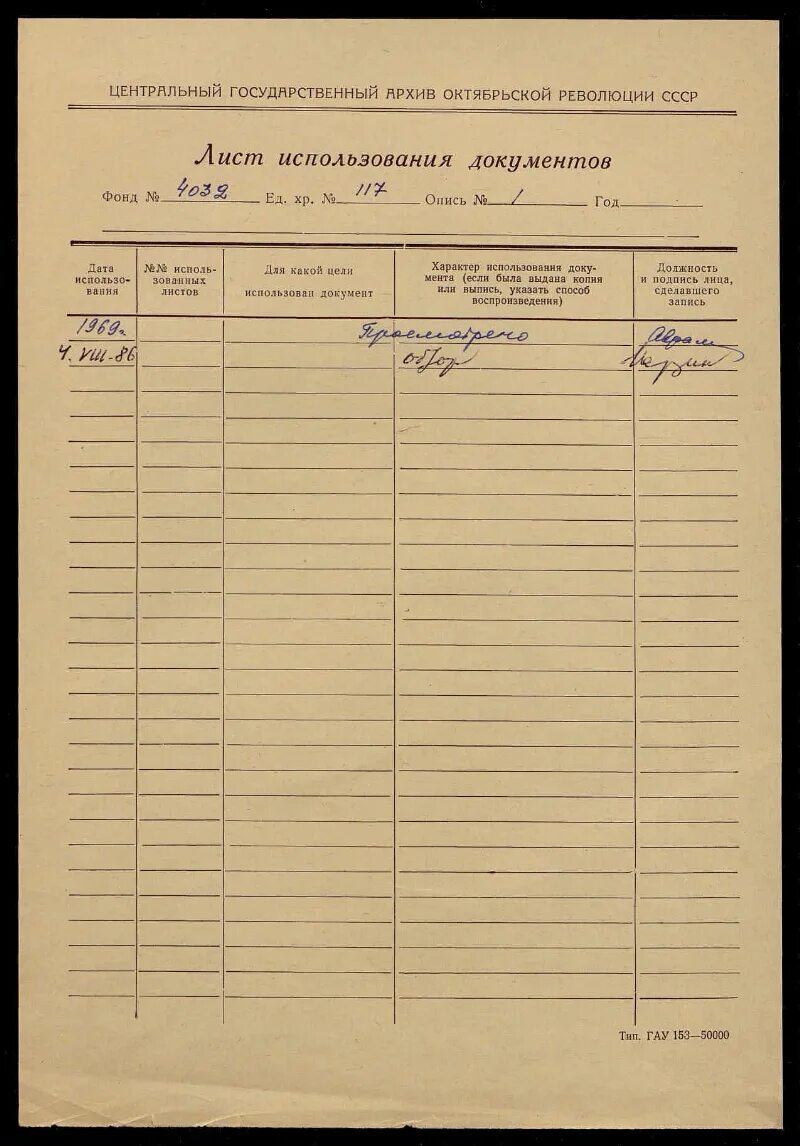 ЦЕНТРАЛЬНЫЙ ГОСУДАРСТВЕННЫЙ АРХИВ ОКТЯБРЬСКОЙ РЕВОЛЮЦИИ СССР
Лист использования документов
Фонд № 4032 Ед. хр. № 117 Опись № 1 Год
Дата использо-вания
№№ исполь-зованных листов
Для какой цели использован документ
Характер использования доку-мента (если была выдана копия или выпись, указать способ воспроизведения)
Должность и подпись лица, сделавшего запись
1969г. Просмотрено
4.VIII-86 обзор
Тип. ГАУ 153—50000